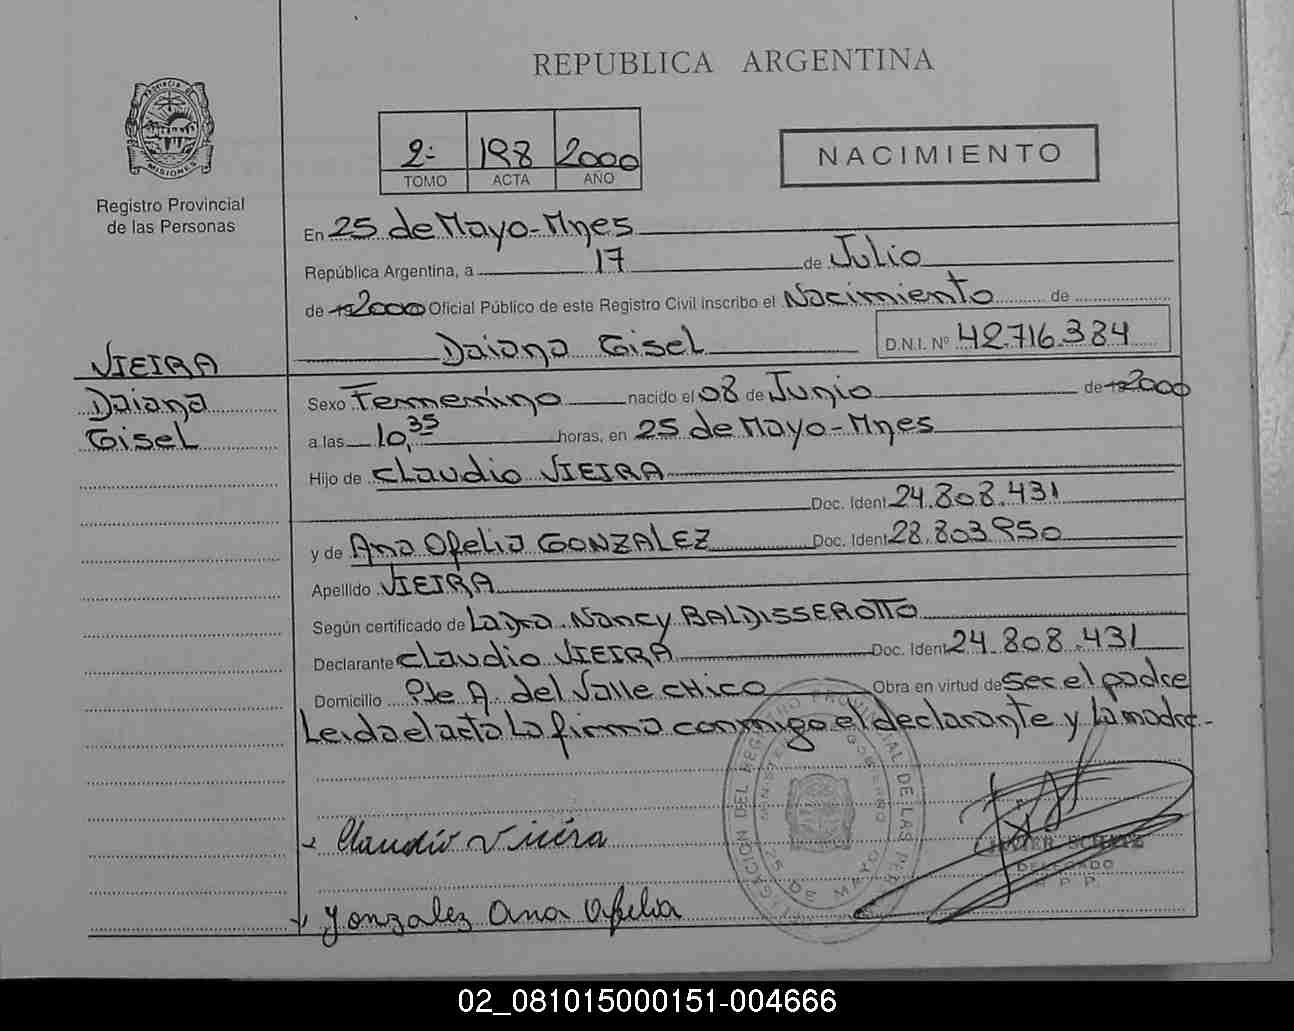 REPUBLICA ARGENTINA
PROVINCIA DE MISIONES
Registro Provincial
de las Personas
2= 198 2000
TOMO ACTA AÑO
NACIMIENTO
En 25 de Mayo-Mnes
República Argentina, a 17 de Julio
de 192000 Oficial Público de este Registro Civil inscribo el Nacimiento de
Daiana Gisel D.N.I. Nº 42.716.384
VIEIRA
Daiana
Gisel
Sexo Femenino nacido el 08 de Junio de 192000
a las 10,35 horas, en 25 de Mayo-Mnes
Hijo de Claudio VIEIRA
Doc. Ident. 24.808.431
y de Ana Ofelia GONZALEZ Doc. Ident. 28.803.950
Apellido VIEIRA
Según certificado de Ladra. Nancy BALDISSEROTTO
Declarante Claudio VIEIRA Doc. Ident. 24.808.431
Domicilio Pje A. del Valle CHICO Obra en virtud de Ser el padre
Leida el acta La firma conmigo el declarante y la madre.-
Claudio Vieira
Gonzalez Ana Ofelia
DEL REGISTRO PROVINCIAL DE LAS
MINISTERIO GOBIERNO
25 DE MAYO
JAVIER
DELEGADO
R.P.P.
02_081015000151-004666